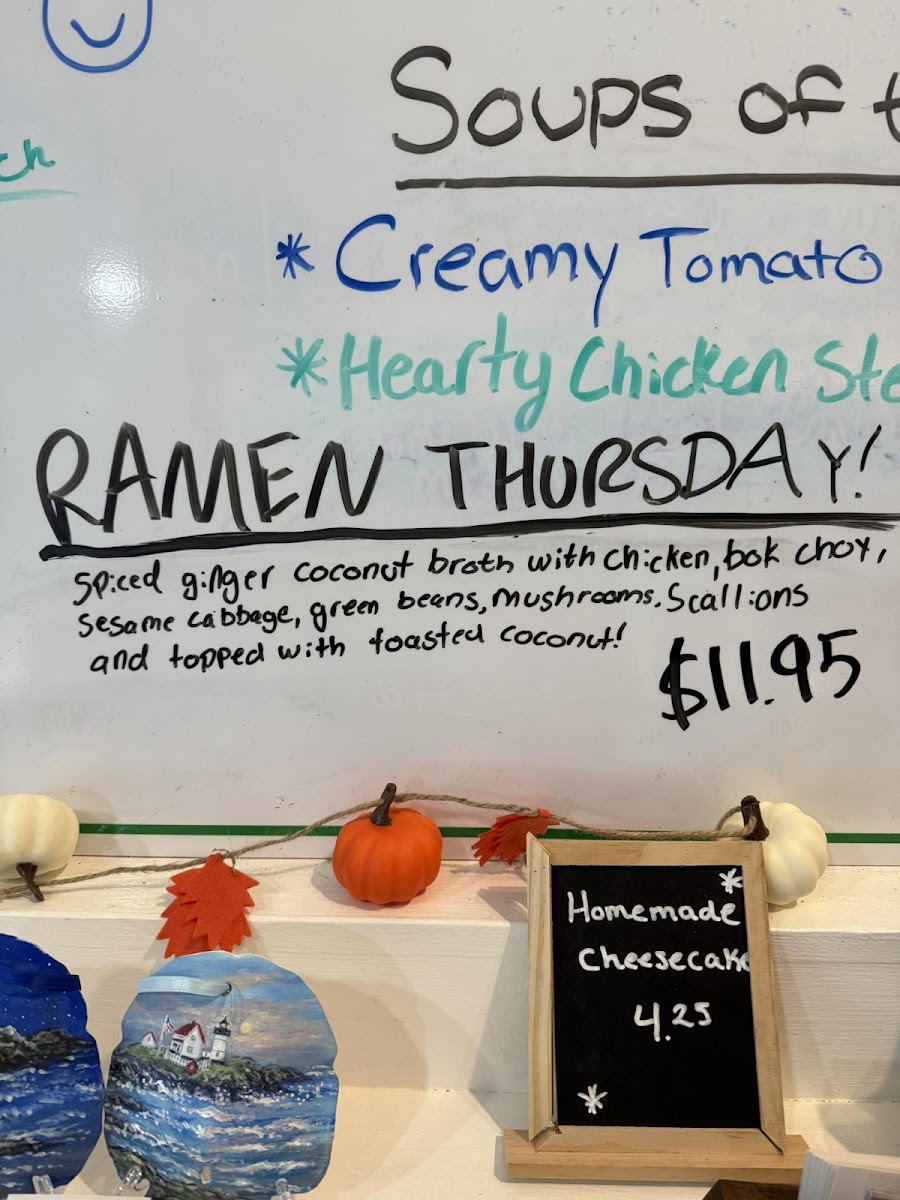 Soups of
* Creamy Tomato
* Hearty Chicken
RAMEN THURSDAY!
Spiced ginger coconut broth with chicken, bok choy,
sesame cabbage, green beans, mushrooms. Scallions
and topped with toasted coconut!
$11.95
* Homemade
Cheesecake
4.25
*